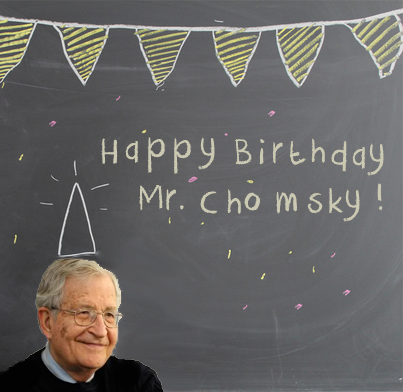 Happy Birthday
Mr. Chomsky!